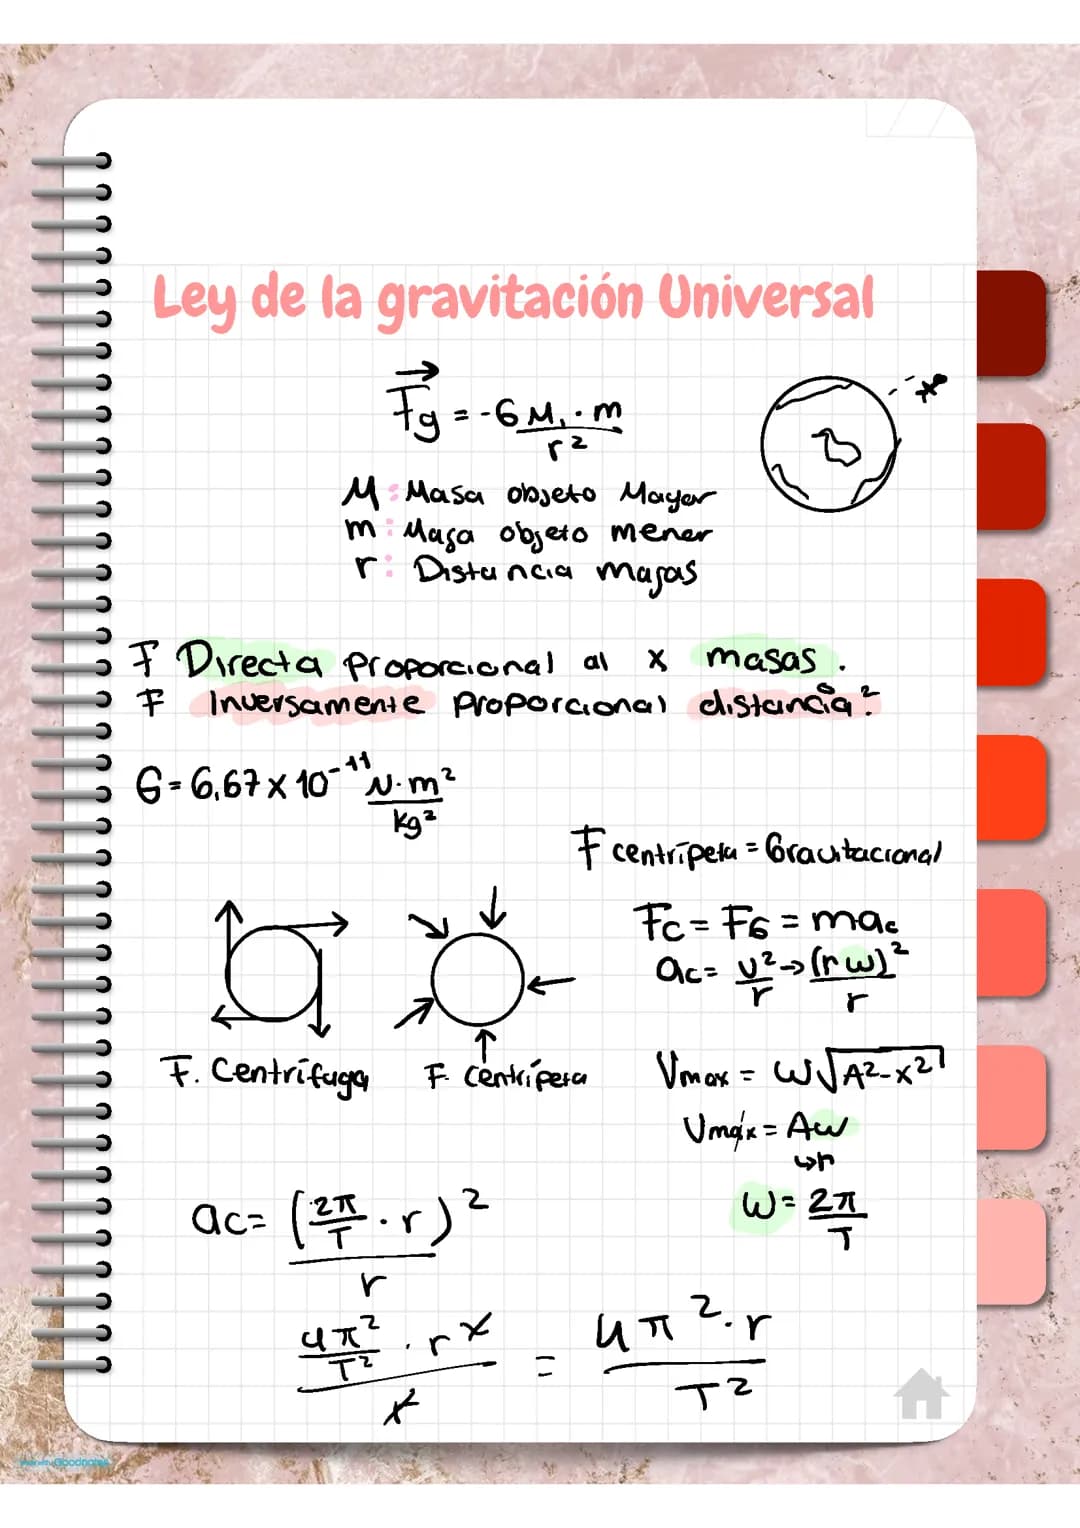 Ley de la gravitación Universal
Fg = -G M₁ · m
r²
M: Masa objeto Mayor
m: Masa objeto menor
r: Distancia masas
F Directa Proporcional al x masas.
F Inversamente Proporcional distancia²
G = 6,67 x 10⁻¹¹ N·m²
kg²
F centrípeta = Gravitacional
Fc = FG = mac
ac = v² → (rw)²
r r
F. Centrífuga F. Centrípeta
Vmax = w√A²-x²
Vmáx = Aw
↳r
w = 2π
T
ac = (2π/T · r)²
r
4π²/T² · r² = 4π² · r
r T²
Goodnotes